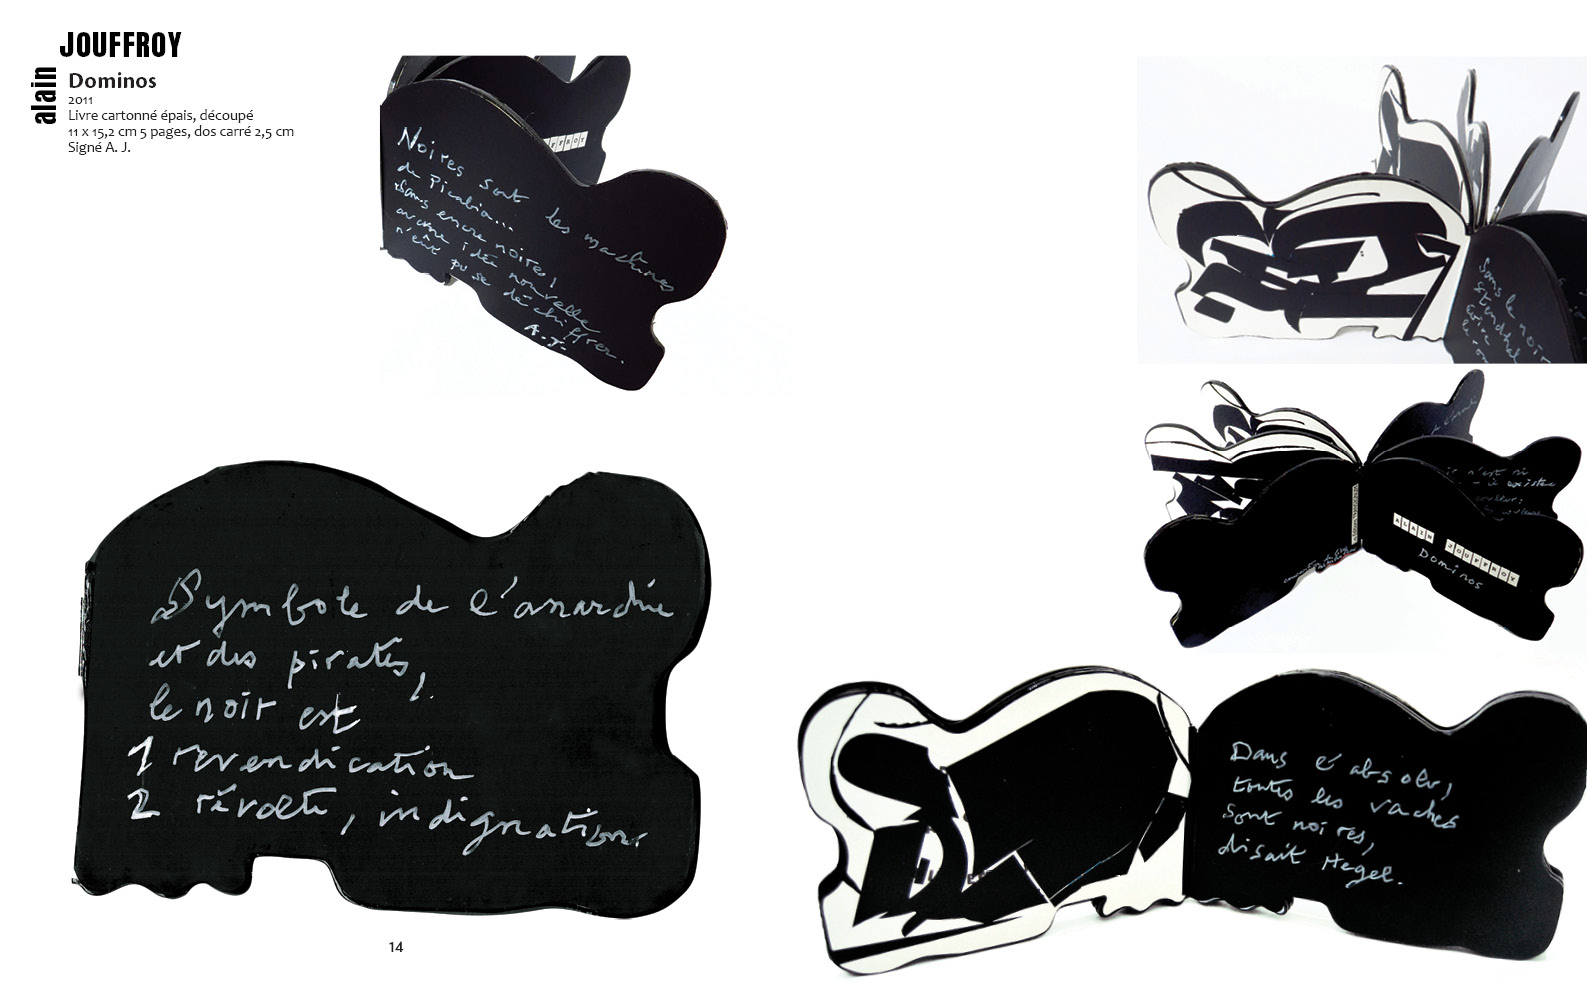 JOUFFROY
alain
Dominos
2011
Livre cartonné épais, découpé
11 x 15,2 cm 5 pages, dos carré 2,5 cm
Signé A. J.
FFROY
Noires sont les machines
de Picabia...
Sans encre noire,
aucune idée nouvelle
n'eût pu se déchiffrer.
A.J.
Symbole de l'anarchie
et des pirates,
le noir est
1 revendication
2 révolte, indignation.
14
Sans le noir
Stendhal
n'est ni
existe
ALAIN JOUFFROY
Dominos
Dans l'absolu,
toutes les vaches
sont noires,
disait Hegel.